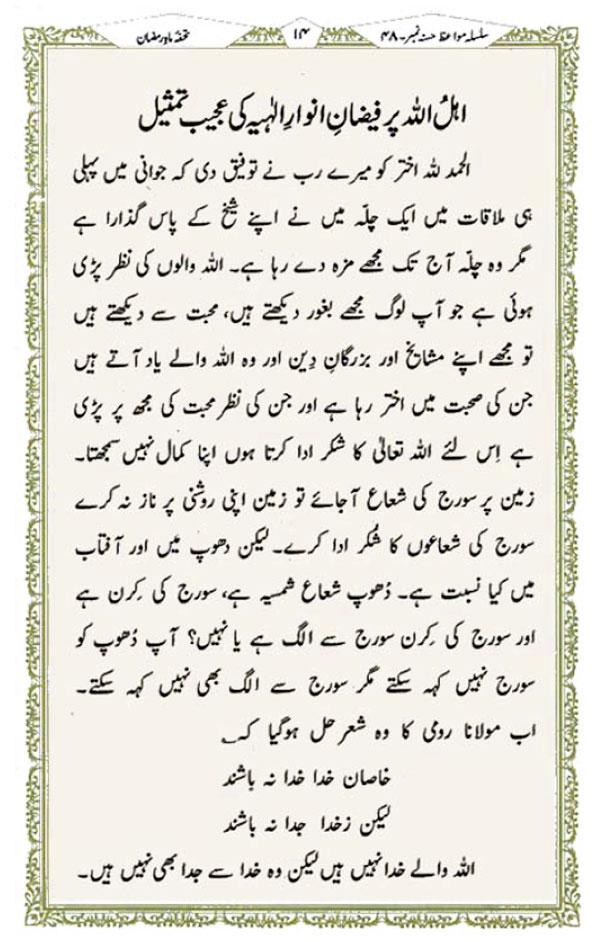 سلسلہ مواعظ حسنہ نمبر۔۴۸
۱۴
تحفۂ ماہِ رمضان
اھلُ اللہ پر فیضانِ انوارِ الٰہیہ کی عجیب تمثیل
الحمد للہ اختر کو میرے رب نے توفیق دی کہ جوانی میں پہلی
ہی ملاقات میں ایک چلّہ میں نے اپنے شیخ کے پاس گذارا ہے
مگر وہ چلّہ آج تک مجھے مزہ دے رہا ہے۔ اللہ والوں کی نظر پڑی
ہوئی ہے جو آپ لوگ مجھے بغور دیکھتے ہیں، محبت سے دیکھتے ہیں
تو مجھے اپنے مشایخ اور بزرگانِ دِین اور وہ اللہ والے یاد آتے ہیں
جن کی صحبت میں اختر رہا ہے اور جن کی نظر محبت کی مجھ پر پڑی
ہے اِس لئے اللہ تعالیٰ کا شکر ادا کرتا ہوں اپنا کمال نہیں سمجھتا۔
زمین پر سورج کی شعاع آجائے تو زمین اپنی روشنی پر ناز نہ کرے
سورج کی شعاعوں کا شُکر ادا کرے۔ لیکن دھوپ میں اور آفتاب
میں کیا نسبت ہے۔ دُھوپ شعاع شمسیہ ہے، سورج کی کِرن ہے
اور سورج کی کِرن سورج سے الگ ہے یا نہیں؟ آپ دُھوپ کو
سورج نہیں کہہ سکتے مگر سورج سے الگ بھی نہیں کہہ سکتے۔
اب مولانا رومی کا وہ شعر حل ہوگیا کہ ؂
خاصان خدا خدا نہ باشند
لیکن زخدا جدا نہ باشند
اللہ والے خدا نہیں ہیں لیکن وہ خدا سے جدا بھی نہیں ہیں۔